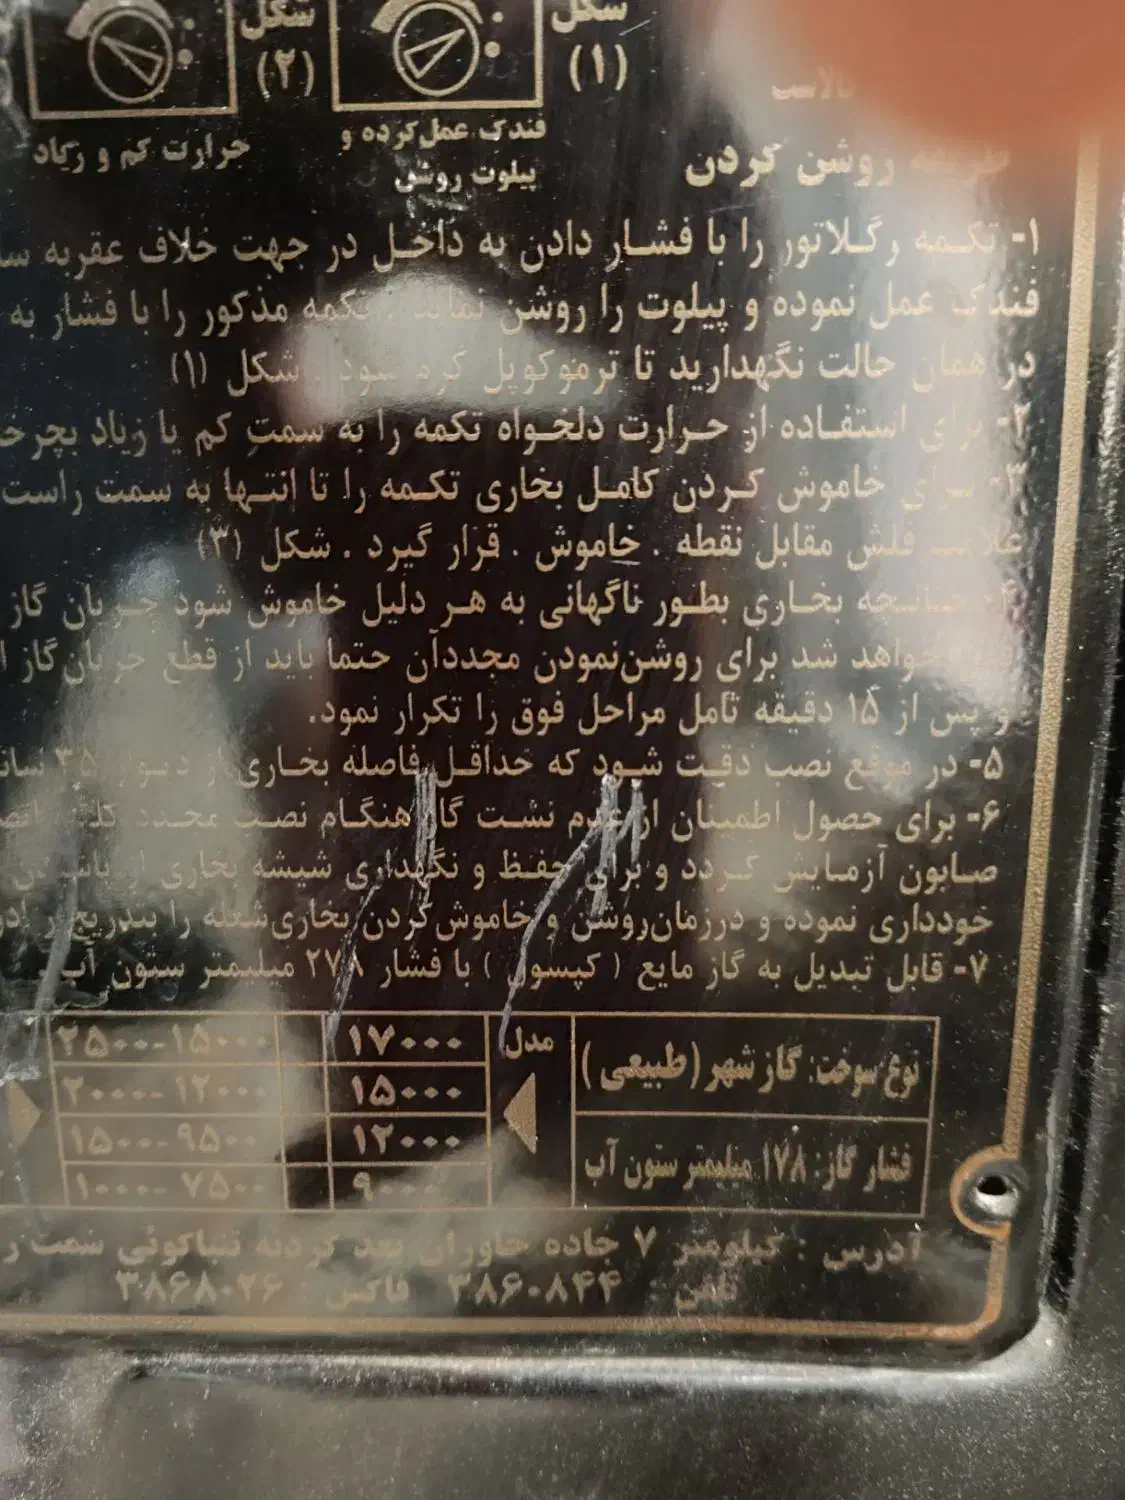 شکل (۱)
شکل (۲)
فندک عمل کرده و
پیلوت روشن
حرارت کم و زیاد
روشن کردن
۱- تکمه رگلاتور را با فشار دادن به داخل در جهت خلاف عقربه
فندک عمل نموده و پیلوت را روشن نماید . تکمه مذکور را با فشار به
در همان حالت نگهدارید تا ترموکوپل گرم شود . شکل (۱)
۲- برای استفاده از حرارت دلخواه تکمه را به سمت کم یا زیاد
۳- برای خاموش کردن کامل بخاری تکمه را تا انتها به سمت راست
علامت فلش مقابل نقطه . خاموش . قرار گیرد . شکل (۳)
۴- چنانچه بخاری بطور ناگهانی به هر دلیل خاموش شود جریان گاز
خواهد شد برای روشن نمودن مجددآن حتما باید از قطع جریان گاز
و پس از ۱۵ دقیقه تامل مراحل فوق را تکرار نمود.
۵- در موقع نصب دقت شود که حداقل فاصله بخاری از دیوار ۳۵
۶- برای حصول اطمینان از عدم نشت گاز هنگام نصب مجدد
صابون آزمایش گردد و برای حفظ و نگهداری شیشه بخاری از
خودداری نموده و درزمان روشن و خاموش کردن بخاری شعله را بتدریج
۷- قابل تبدیل به گاز مایع ( کپسول ) با فشار ۲۷۸ میلیمتر ستون آب
نوع سوخت: گاز شهر (طبیعی) مدل ۱۷۰۰۰ ۱۵۰۰۰-۲۵۰۰
۱۵۰۰۰ ۱۲۰۰۰-۲۰۰۰
فشار گاز: ۱۷۸ میلیمتر ستون آب ۱۲۰۰۰ ۹۵۰۰-۱۵۰۰
۹۰۰۰ ۷۵۰۰-۱۰۰۰
آدرس : کیلومتر ۷ جاده خاوران بعد گردنه تنباکوئی سمت
تلفن ۳۸۶۰۸۴۴ فاکس : ۳۸۶۸۰۲۶